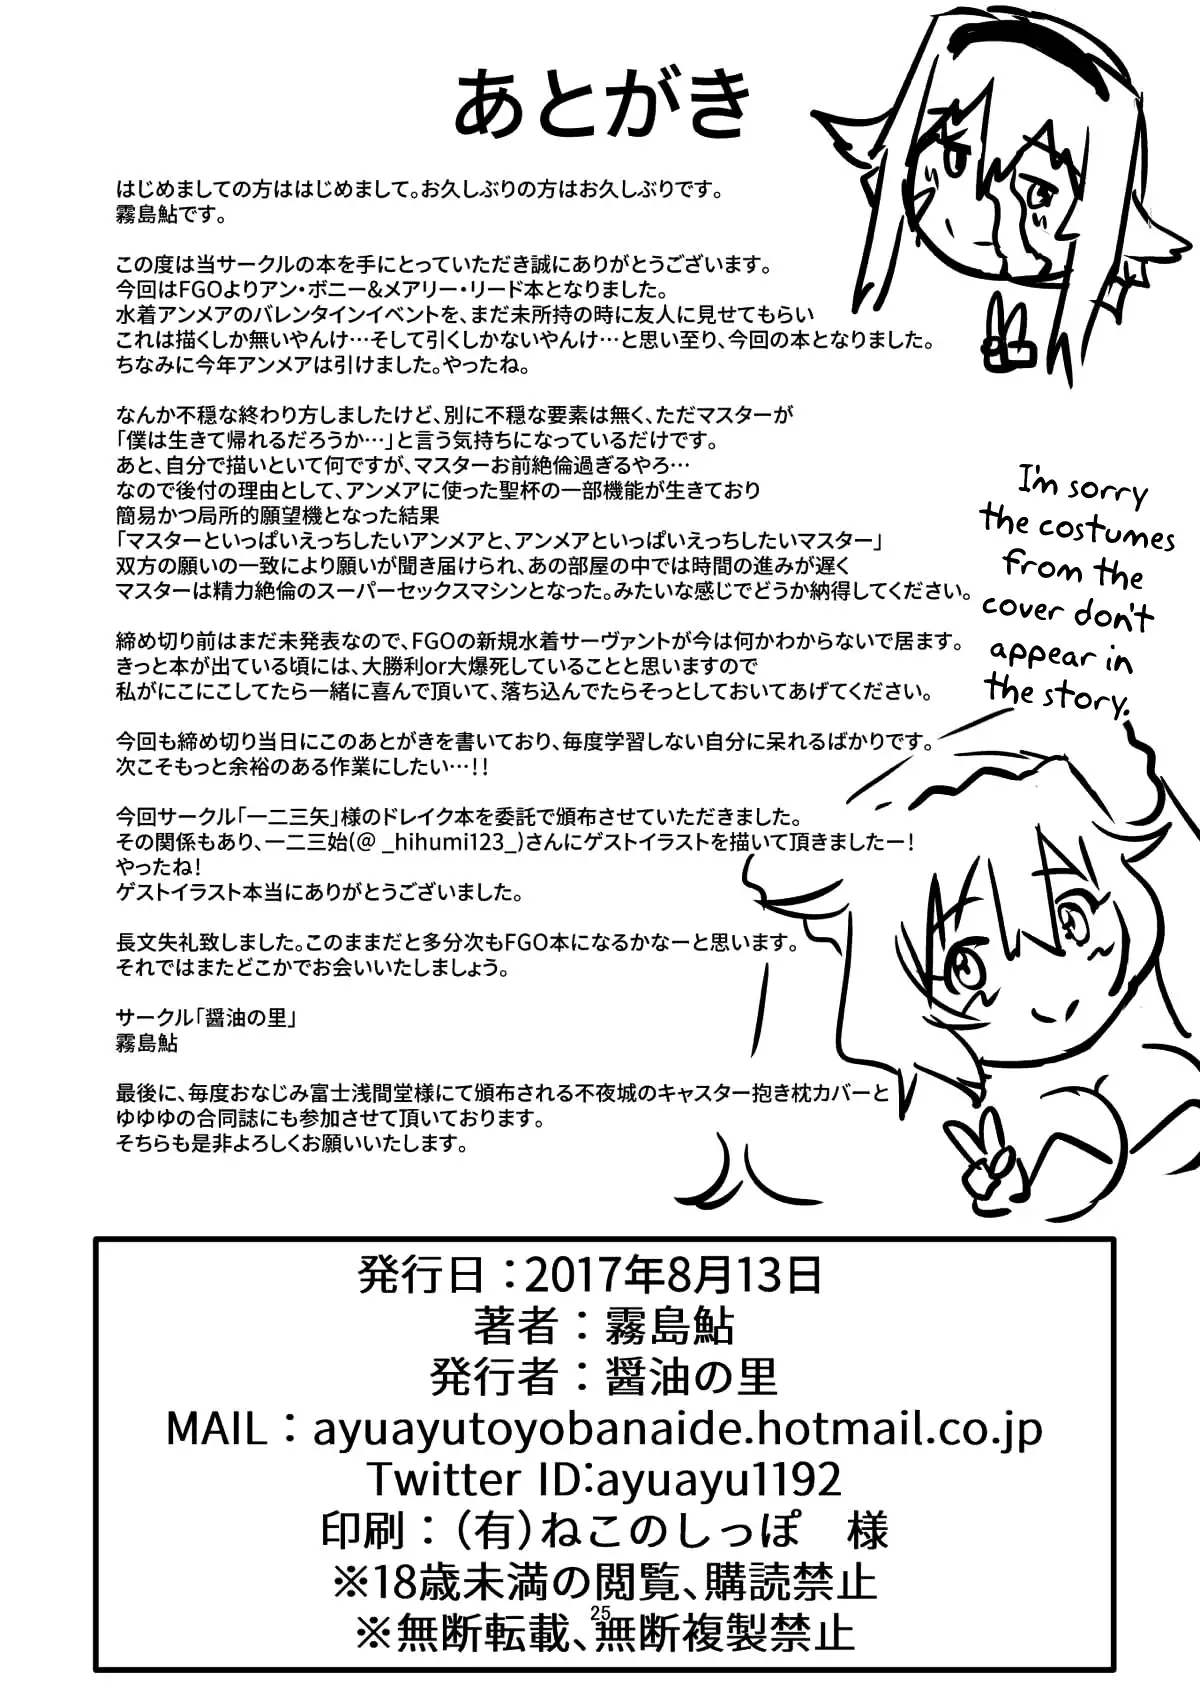 あとがき
はじめましての方ははじめまして。お久しぶりの方はお久しぶりです。
霧島鮎です。
この度は当サークルの本を手にとっていただき誠にありがとうございます。
今回はFGOよりアン・ボニー&メアリー・リード本となりました。
水着アンメアのバレンタインイベントを、まだ未所持の時に友人に見せてもらい
これは描くしか無いやんけ…そして引くしかないやんけ…と思い至り、今回の本となりました。
ちなみに今年アンメアは引けました。やったね。
なんか不穏な終わり方しましたけど、別に不穏な要素は無く、ただマスターが
「僕は生きて帰れるだろうか…」と言う気持ちになっているだけです。
あと、自分で描いといて何ですが、マスターお前絶倫過ぎるやろ…
なので後付の理由として、アンメアに使った聖杯の一部機能が生きており
簡易かつ局所的願望機となった結果
「マスターといっぱいえっちしたいアンメアと、アンメアといっぱいえっちしたいマスター」
双方の願いの一致により願いが聞き届けられ、あの部屋の中では時間の進みが遅く
マスターは精力絶倫のスーパーセックスマシンとなった。みたいな感じでどうか納得してください。
締め切り前はまだ未発表なので、FGOの新規水着サーヴァントが今は何かわからないで居ます。
きっと本が出ている頃には、大勝利or大爆死していることと思いますので
私がにこにこしてたら一緒に喜んで頂いて、落ち込んでたらそっとしておいてあげてください。
今回も締め切り当日にこのあとがきを書いており、毎度学習しない自分に呆れるばかりです。
次こそもっと余裕のある作業にしたい…!!
今回サークル「一二三矢」様のドレイク本を委託で頒布させていただきました。
その関係もあり、一二三始(@ _hihumi123_)さんにゲストイラストを描いて頂きましたー!
やったね!
ゲストイラスト本当にありがとうございました。
長文失礼致しました。このままだと多分次もFGO本になるかなーと思います。
それではまたどこかでお会いいたしましょう。
サークル「醤油の里」
霧島鮎
最後に、毎度おなじみ富士浅間堂様にて頒布される不夜城のキャスター抱き枕カバーと
ゆゆゆの合同誌にも参加させて頂いております。
そちらも是非よろしくお願いいたします。
I'm sorry
the costumes
from the
cover don't
appear in
the story.
発行日：2017年8月13日
著者：霧島鮎
発行者：醤油の里
MAIL：ayuayutoyobanaide.hotmail.co.jp
Twitter ID:ayuayu1192
印刷：（有）ねこのしっぽ　様
※18歳未満の閲覧、購読禁止
※無断転載、無断複製禁止
25